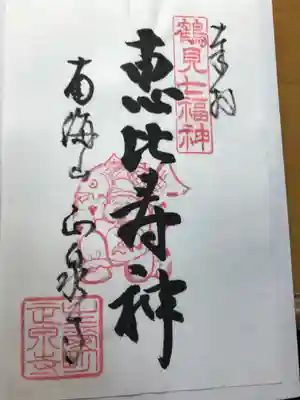 奉拝
鶴見七福神
恵比寿神
南海山 正泉寺